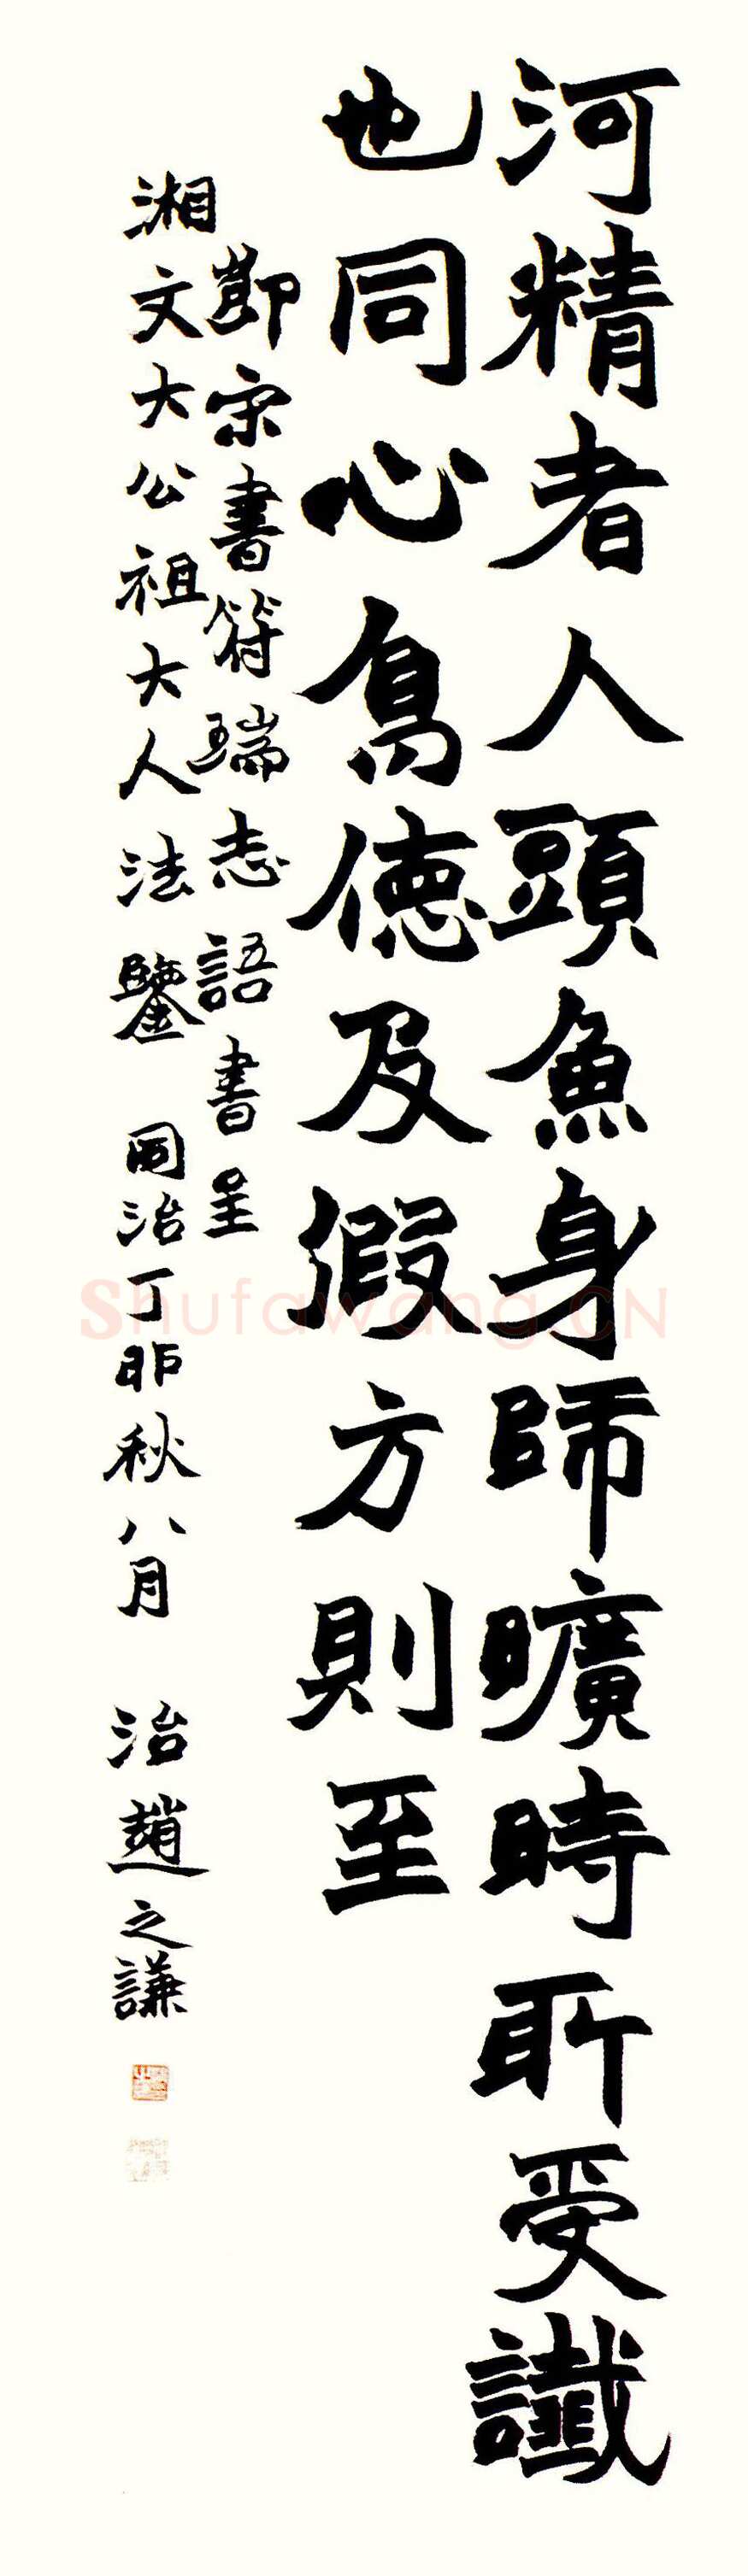 河精者人頭魚身師曠時所受讖
也同心鳥徳及假方則至
節宋書符瑞志語書呈
湘文大公祖大人法鑒 同治丁卯秋八月 治趙之謙
Shufawang.CN